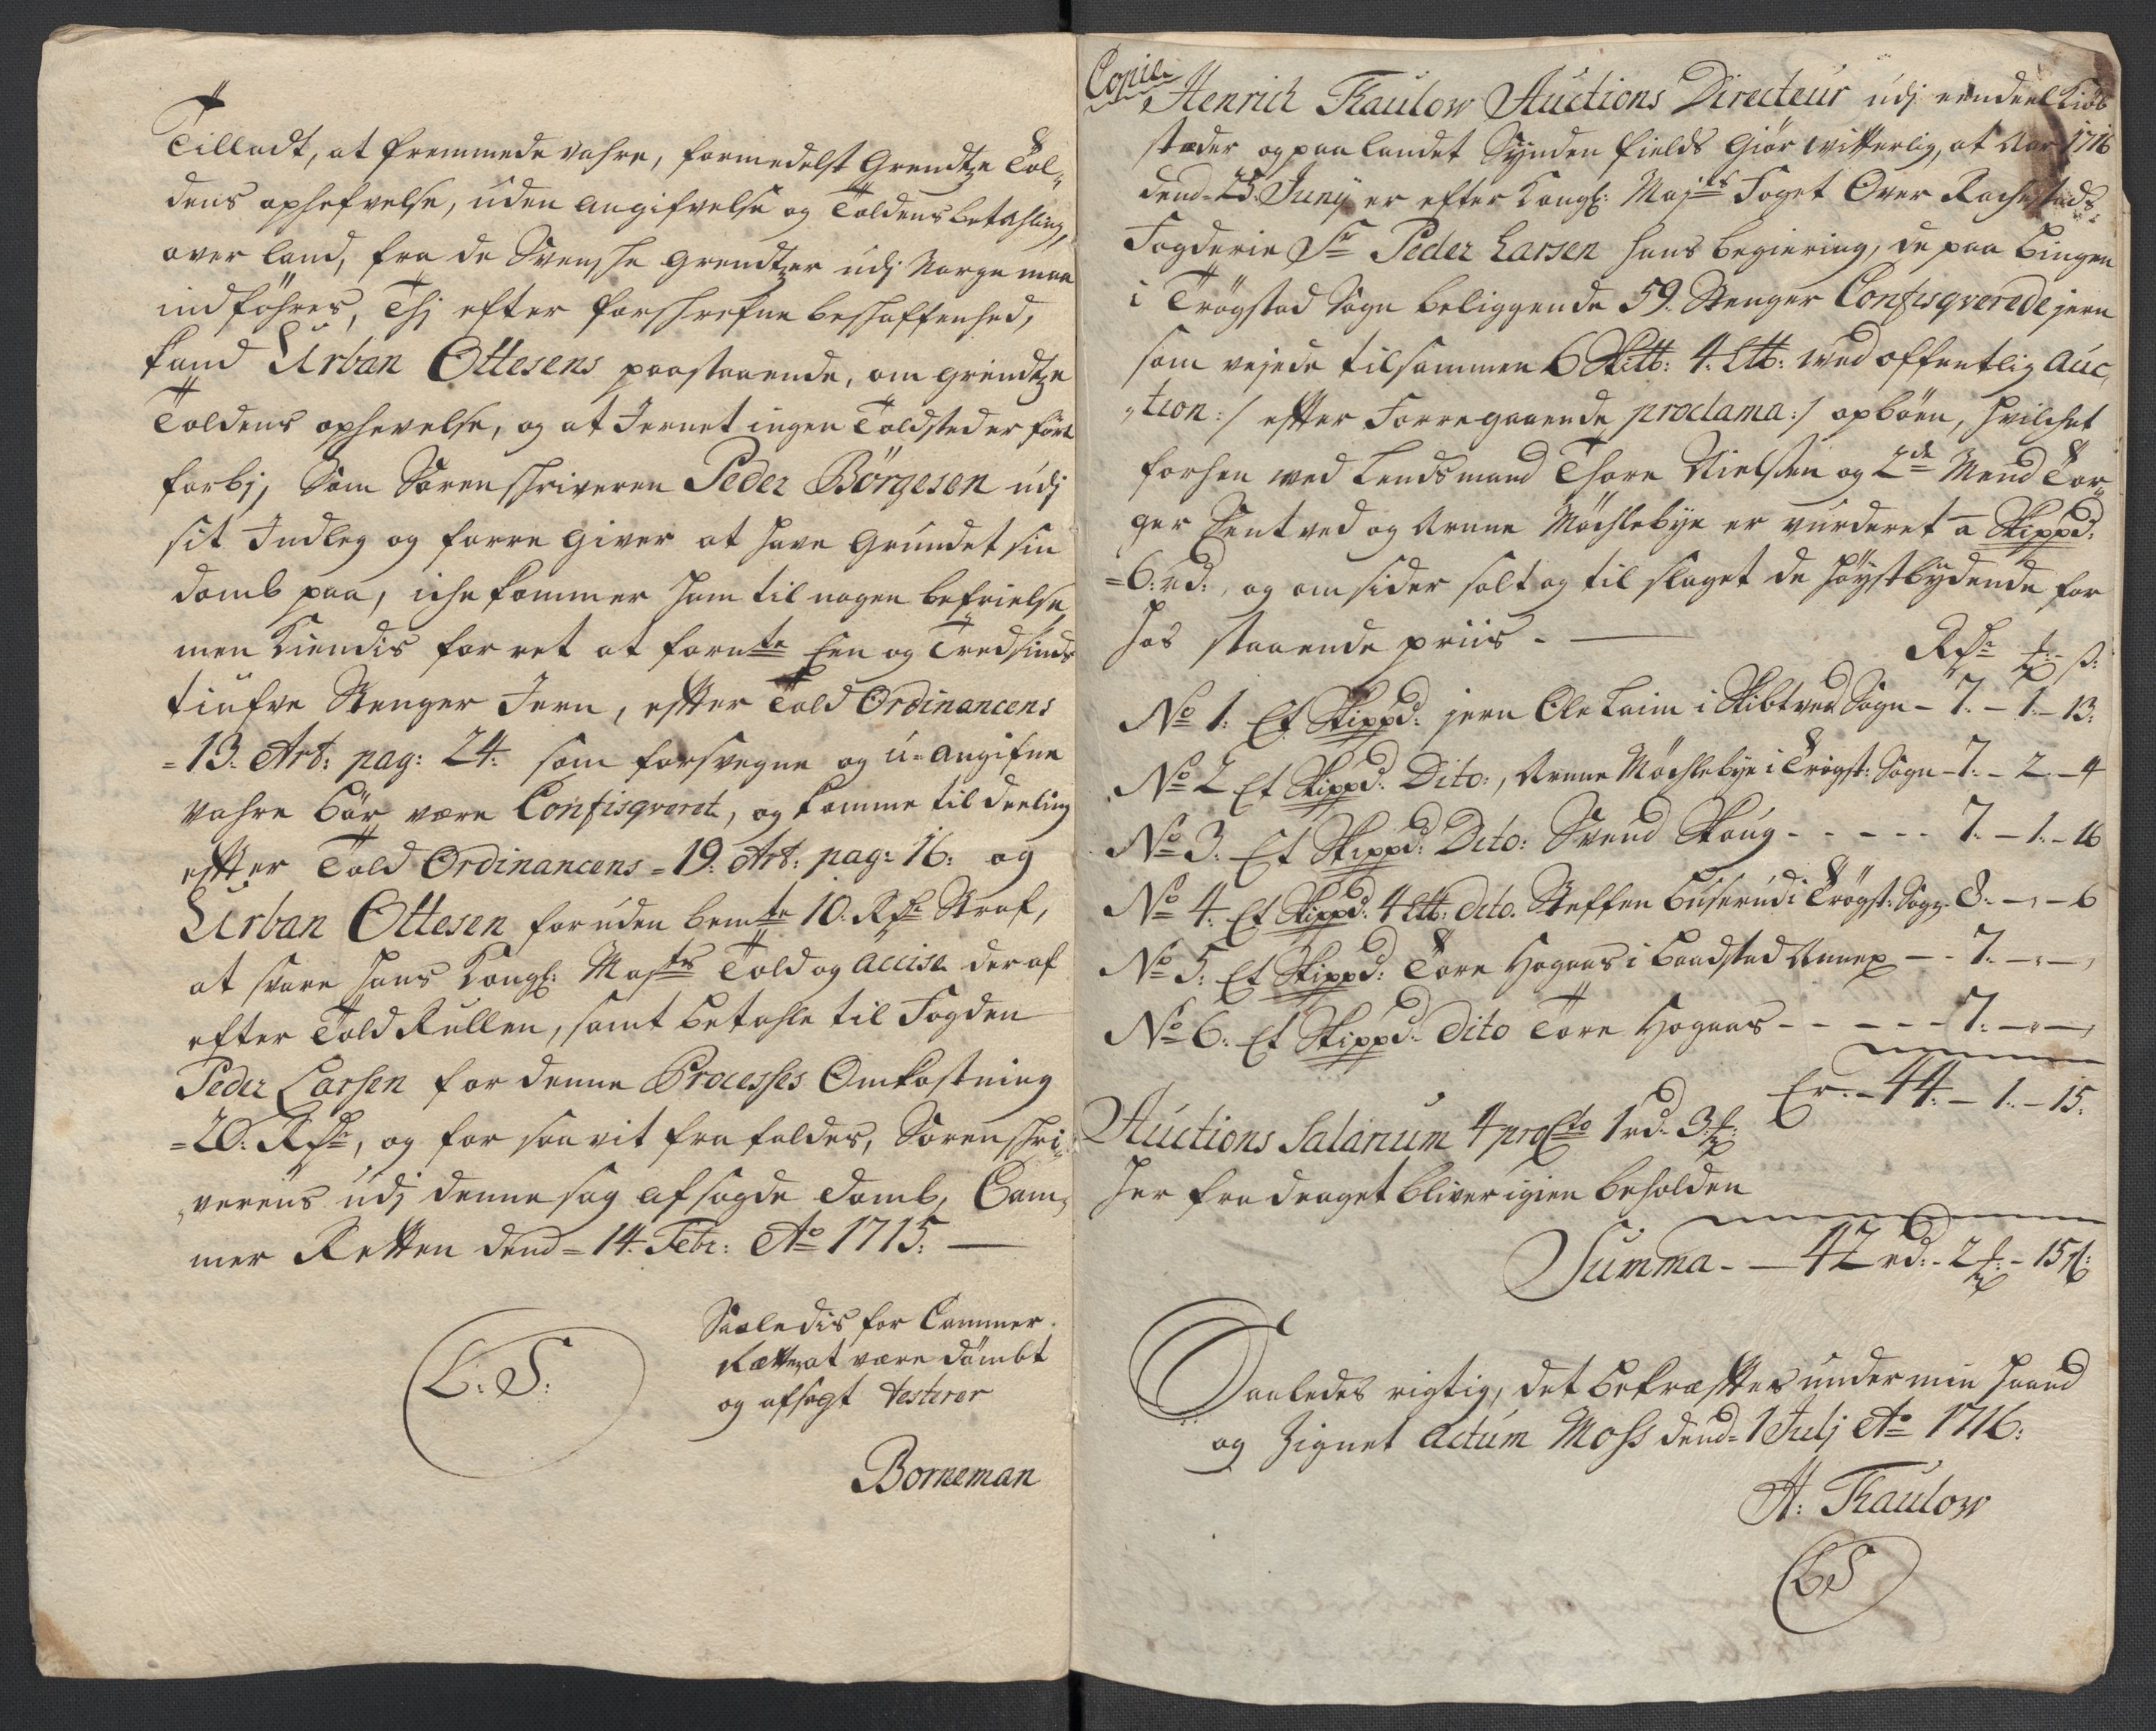 Tilladt, at fremmede vahre, formedelst Grendtze Tol„
dens ophefvelse, uden angifvelse og Toldens betahling,
over land, fra de Svenshe grendtzer udj Norge maa
indföhres, Thj efter forschrefne beschaffenhed,
kand Urban Ottesens paastaaende, om grendtze
Toldens ophevelse, og at Jernet ingen Toldsteder fört
forbj, Som Sorenschriveren Peder Börgesen udj
sit Indleg og forre giver at have grundet sin
domb paa, iche kommer ham til nogen befrielse,
men kiendis for ret at forn<u>te</u> Een og Tredsinds
tiufve Stenger Jern, efter Told Ordinancens
=13. Art: pag: 24. som forsvegne og u=angifne
vahre bör være Confisqveret, og komme til deeling
efter Told Ordinancens =19. Art: pag: 16: og
Urban Ottesen foruden bemte 10. Rdr Straf,
at svare hans Kongl: Majts Told og Accise deraf
efter Told Rullen, samt betahle til Fogden
Peder Larsen for denne Processes Omkostning
=20. Rdr, og for saavit fra faldes, Sorenschri„
„verens udj denne sag afsagde domb, Cam„
mer Retten dend =14. Febr: Ao 1715.
L: S:
Saaledis for Cammer
Retten at være dömbt
og afsagt testerer
Borneman
Copie
Henrich Thaulow Auctions Directeur udj eendeel Kiöb
stæder og paa landet Synden fields Giör witterlig, at Aar 1716
dend 25. Junij er efter Kongl: Majts Foget Over Rachestads
Fogderie Sr Peder Larsen hans begiering, de paa Bingen
i Trögstad Sogn beliggende 59. Stenger Confisqverede jern
som vejede tilsammen 6 Sk℔: 4. L℔: wed offentlig Auc„
„tion :/ efter Forregaaende proclama :/ opböen, hvilchet
forhen wed Lendsmand Thore Nielsen og 2de Mend Tor„
ger Sentved og Arnne Möchlebye er vurderet a Skippd:
=6: rd:, og omsider solt og tilslaget de höystbydende for
hos staaende priis -
Rdr ort - ß:
No 1. Et Skippd: jern Ole Laim i Skibtved Sogn - 7. - 1. - 13:
No 2 Et Skippd: Dito:, Arnne Möchlebye i Trögst: Sogn - 7. - 2. - 4
No 3. Et Skippd: Dito: Svend Skoug - - - - - 7. - 1. - 16
No 4. Et Skippd: 4 L℔: dito. Steffen Buserud i Trögst: Sogn 8. - „ - 6
No 5. Et Skippd: Tore Hogaas i Baadstad Annex - - 7. - „ - „
No 6. Et Skippd: Dito Tore Hogaas - - - - - 7. - „ - „
Er. - 44. - 1. - 15.
Auctions Salarium 4 pro Cto 1 rd. 3 ort:
her fra draget bliver igien beholden
Summa - - 42 rd: - 2 ort: - 15 ß:
Saaledes rigtig, det bekræfter under min haand
og Zignet Actum Moss dend 1 Julj Ao 1716:
H: Thaulow
LS